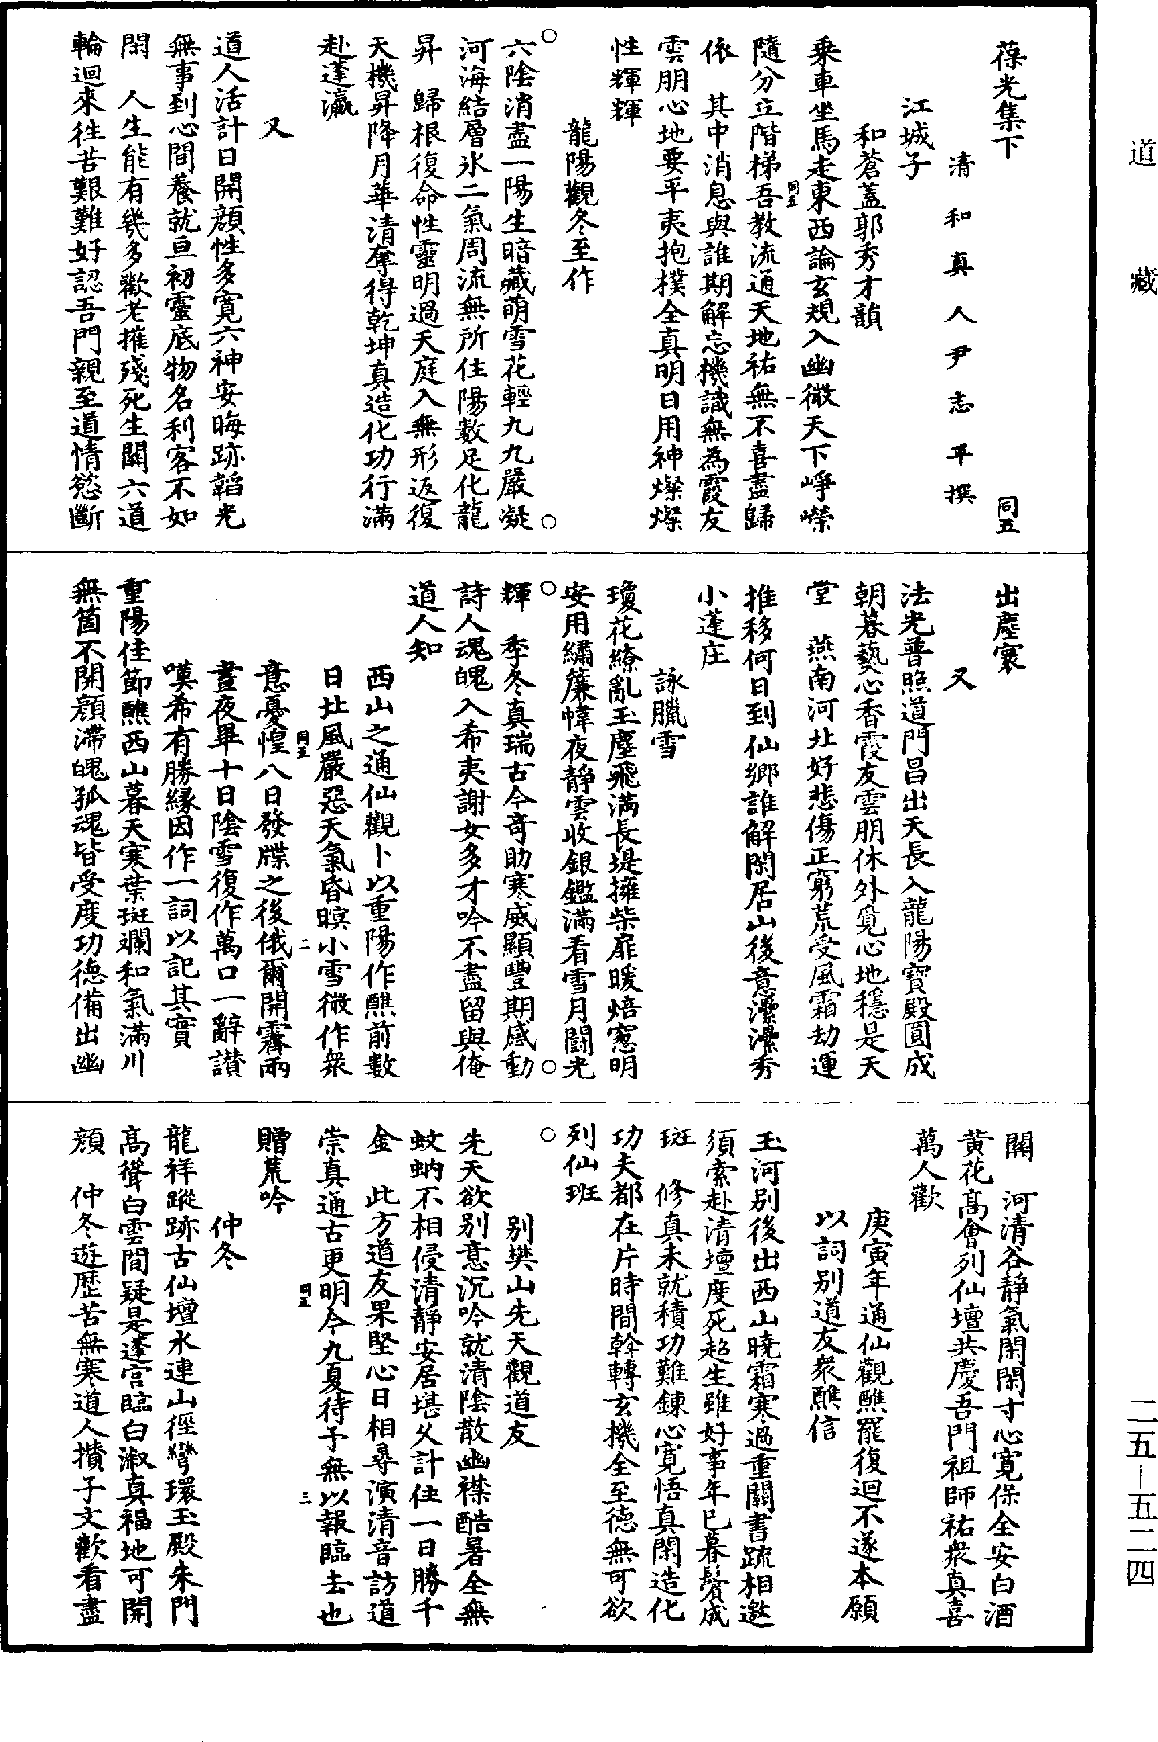 道藏
葆光集下 同五
清和真人尹志平撰
江城子
和蒼蓋郭秀才韻
乘車坐馬走東西論玄規入幽微天下崢嶸
同五 一
隨分立階梯吾教流通天地祐無不喜盡歸
依 其中消息與誰期解忘機識無為霞友
雲朋心地要平夷抱樸全真明日用神燦燦
性輝輝
龍陽觀冬至作
六陰消盡一陽生暗藏萌雪花輕九九嚴凝
河海結層氷二氣周流無所住陽數足化龍
昇 歸根復命性靈明過天庭入無形返復
天機昇降月華清奪得乾坤真造化功行滿
赴蓬瀛
又
道人活計日開顏性多寬六神安晦跡韜光
無事到心間養就亘初靈底物名利客不如
閑 人生能有幾多歡老摧殘死生關六道
輪迴來往苦艱難好認吾門親至道情慾斷
出塵寰
又
法光普照道門昌出天長入龍陽寶殿圓成
朝暮爇心香霞友雲朋休外覓心地穩是天
堂 燕南河北好悲傷正窮荒受風霜劫運
推移何日到仙鄉誰解閑居山後意瀠瀠秀
小蓬庄
詠臘雪
瓊花繚亂玉塵飛滿長堤擁柴扉暖焙窻明
安用繡簾幃夜靜雲收銀鑑滿看雪月鬪光
輝 季冬真瑞古今奇助寒威顯豐期感動
詩人魂魄入希夷謝女多才吟不盡留與俺
道人知
西山之通仙觀卜以重陽作醮前數
日北風嚴惡天氣昏暝小雪微作衆
同五 二
意憂惶八日發牒之後俄爾開霽兩
晝夜畢十日陰雪復作萬口一辭讚
嘆希有勝緣因作一詞以記其實
重陽佳節醮西山暮天寒葉斑斕和氣滿川
無箇不開顏滯魄孤魂皆受度功德備出幽
關 河清谷靜氣閑閑寸心寬保全安白酒
黃花高會列仙壇共慶吾門祖師祐衆真喜
萬人歡
庚寅年通仙觀醮罷復迴不遂本願
以詞別道友衆醮信
玉河別後出西山曉霜寒過重關書疏相邀
須索赴清壇度死超生雖好事年已暮鬢成
斑 修真未就積功難鍊心寬悟真閑造化
功夫都在片時間斡轉玄機全至德無可欲
列仙班
別樊山先天觀道友
先天欲別意沉吟就清陰散幽襟酷暑全無
蚊蚋不相侵清靜安居堪父計住一日勝千
金 此方道友果堅心日相尋演清音訪道
崇真通古更明今九夏待予無以報臨去也
同五 三
贈荒吟
仲冬
龍祥蹤跡古仙壇水連山徑彎環玉殿朱門
高聳白雲間疑是蓬宮臨白溆真福地可開
顏 仲冬遊歷苦無寒道人攢子文歡看盡
二五—五二四